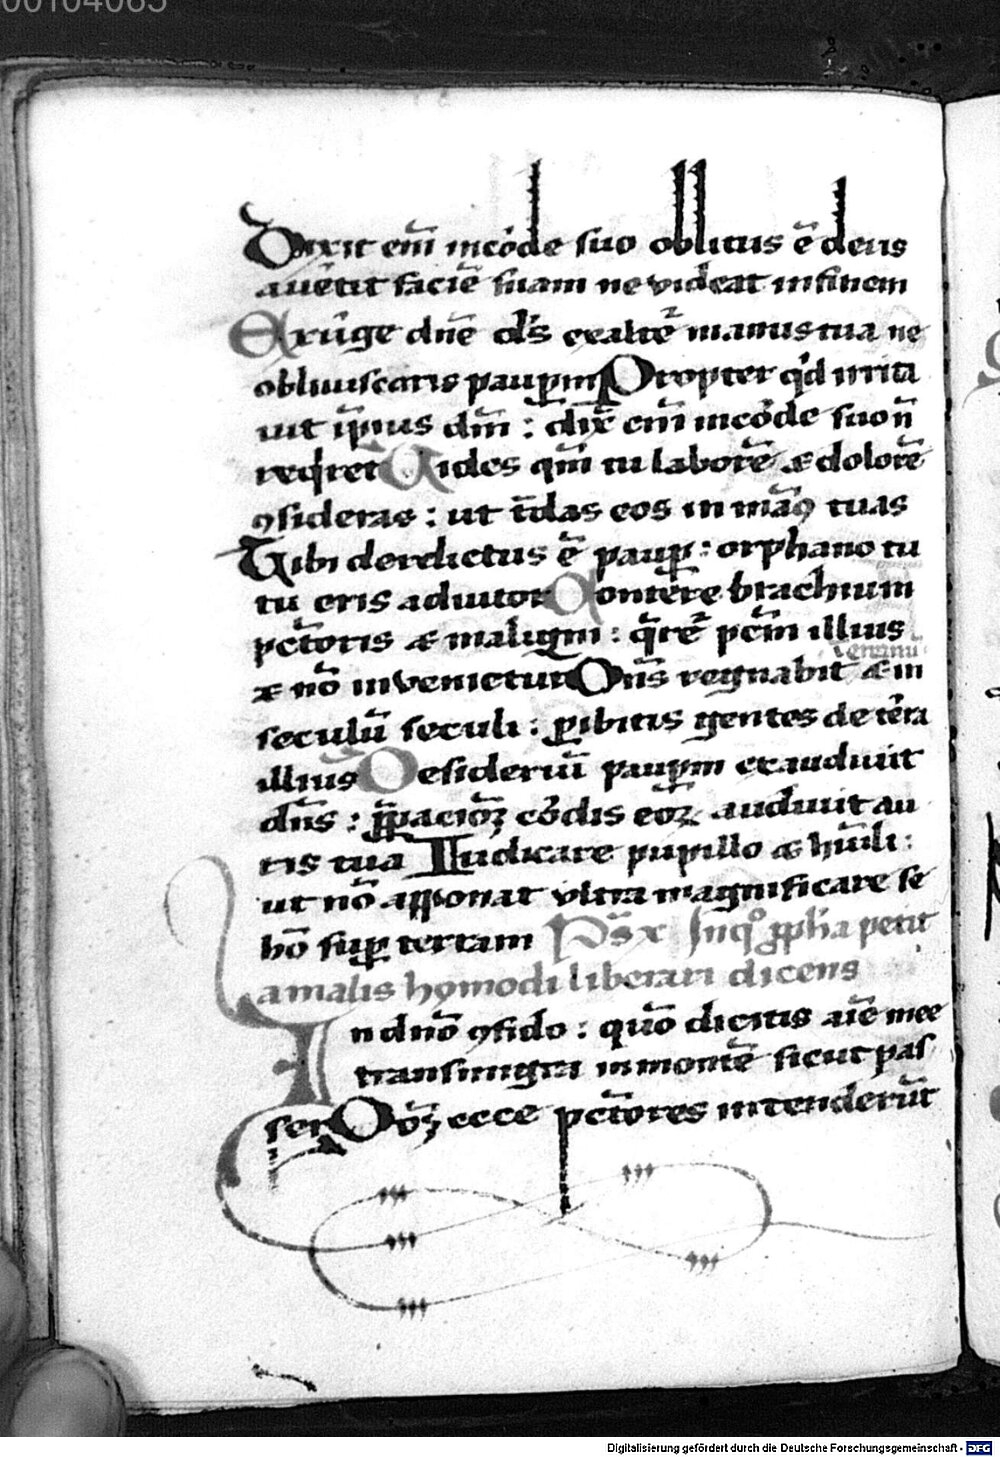 00104065
Dixit em̄ in cōde suo oblitus ē deus
auētit faciē suam ne videat in finem
Exūge dn̄e ds̄ exaltet᷒ manus tua ne
obliuiscaris pauꝑm Propter qd̄ irrita
uit īpius dm̄ : dix̄ em̄ in cōde suo n̄
reqret Uides qm̄ tu laborē & dolorē
ꝯsideras : ut t̄das eos in man᷒ tuas
Tibi derelictus ē pauꝑ : orphano tu
tu eris adiutor Contēre brachium
pct̄oris & maligni : qret᷒ pcm̄ illius
& nō invenietur Dn̄s regnabit & in
eternū
seculū seculi : ꝑibitis gentes de tēra
illius Desideriū pauꝑm exaudiuit
dn̄s : p̄ꝑacioꝫ cōdis eoꝝ audiuit au
ris tua Iudicare pupillo & hūili :
ut nō apponat ultra magnificare se
hō suꝑ terram Ps̄ x In qo ꝓpha petit
a malis hōmodi liberari dicens
In dn̄o ꝯfido : quō dicitis aīe mee
transmigra in montē sicut pas
ser Qm̄ ecce pct̄ores intenderūt
Digitalisierung gefördert durch die Deutsche Forschungsgemeinschaft - DFG